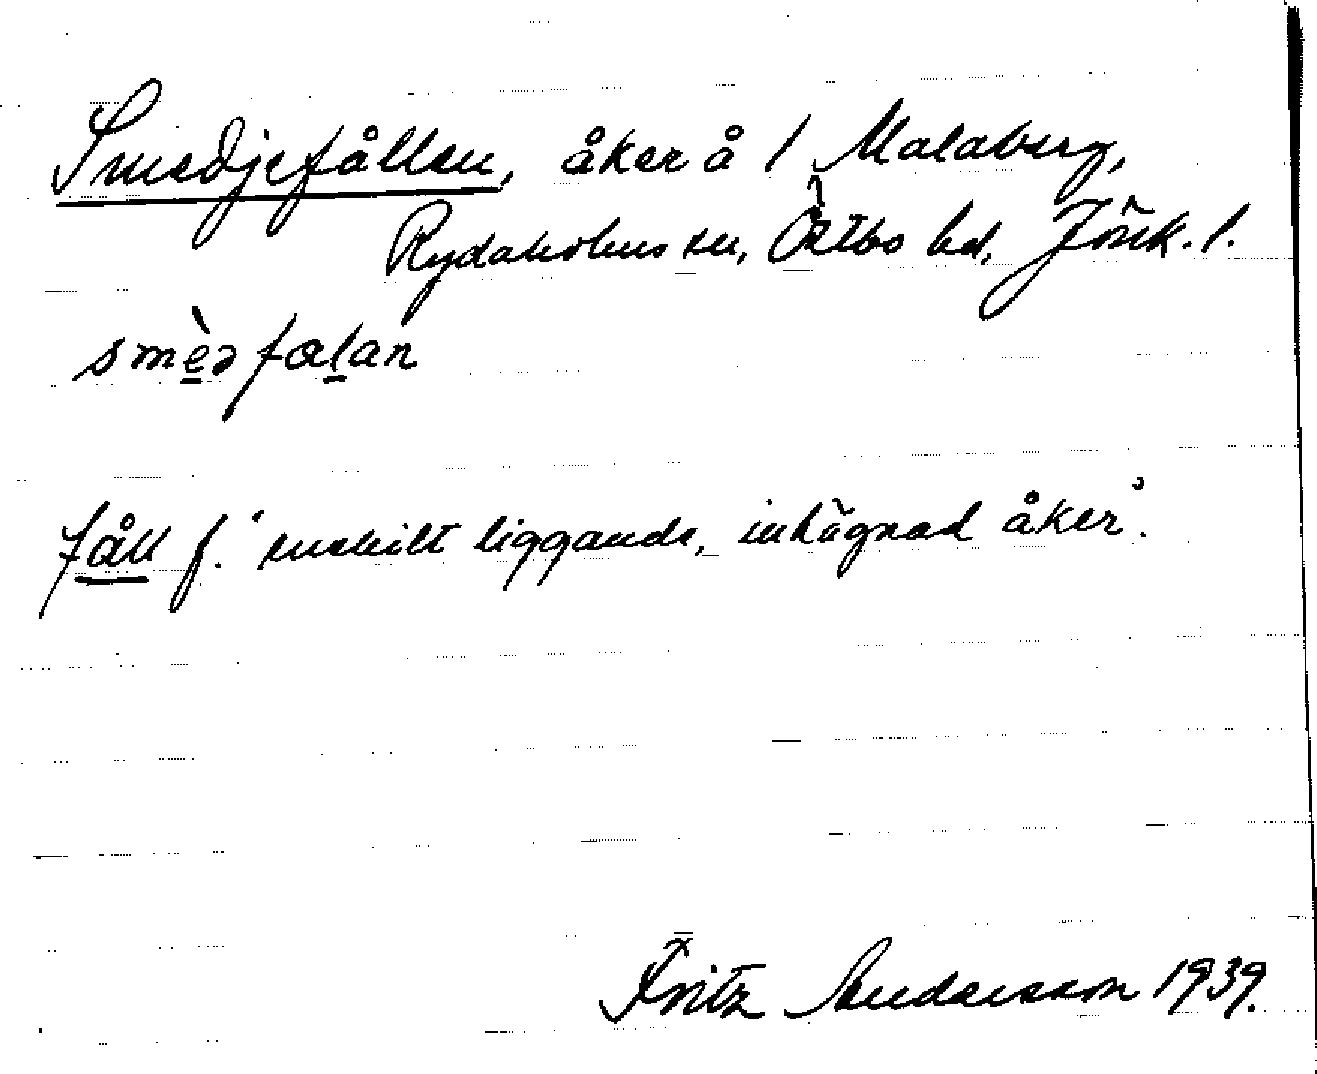 Smedjefållen, åker å 1 Malaberg,
Rydaholms sn, Östbo hd, Jönk. l.
smèdfalan
fåll f. 'enskilt liggande, inhägnad åker'.
Fritz Andersson 1939.